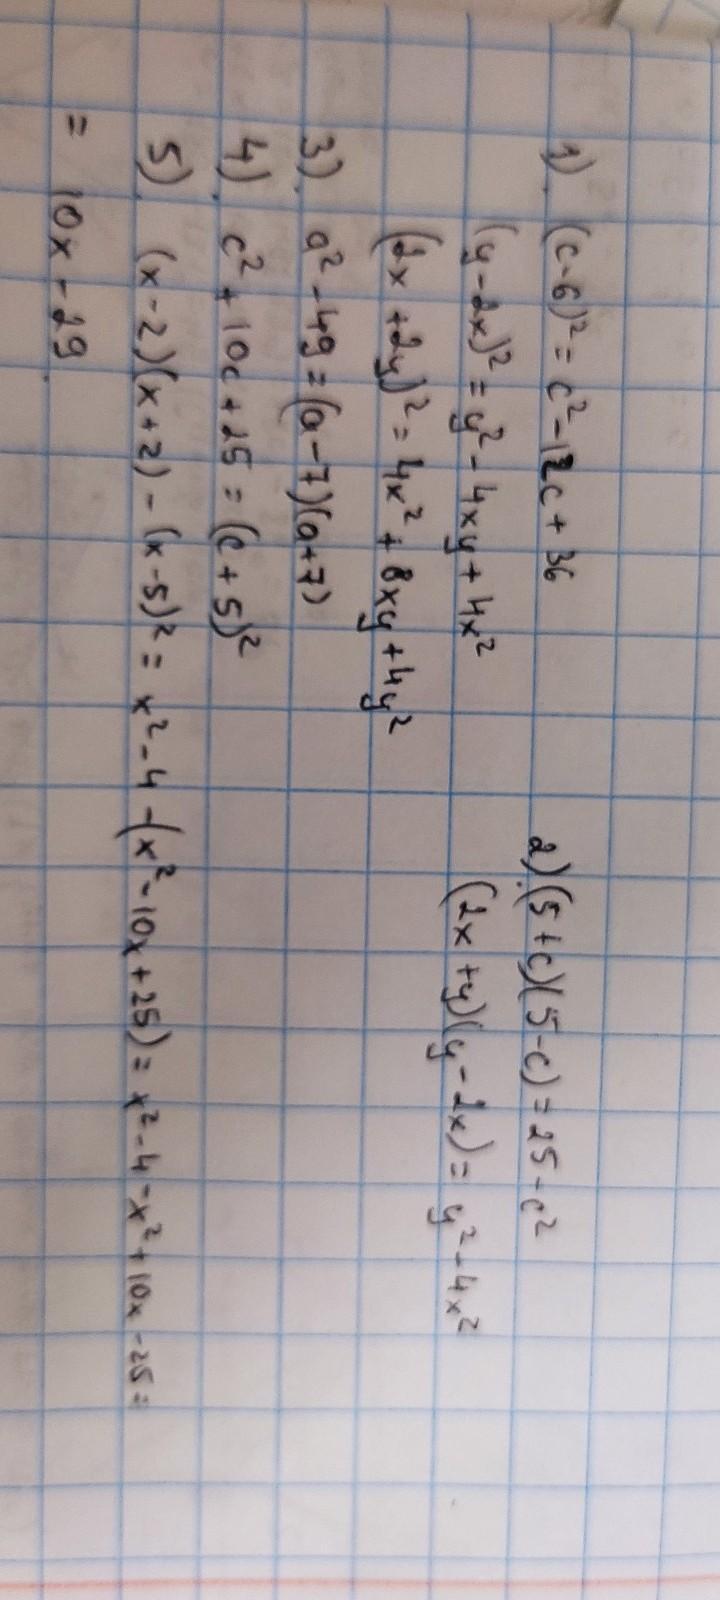 1). (c-6)² = c² - 12c + 36
(y-2x)² = y² - 4xy + 4x²
(2x + 2y)² = 4x² + 8xy + 4y²
2). (5+c)(5-c) = 25 - c²
(2x + y)(y - 2x) = y² - 4x²
3). a² - 49 = (a-7)(a+7)
4). c² + 10c + 25 = (c + 5)²
5). (x-2)(x+2) - (x-5)² = x² - 4 - (x² - 10x + 25) = x² - 4 - x² + 10x - 25 =
= 10x - 29.